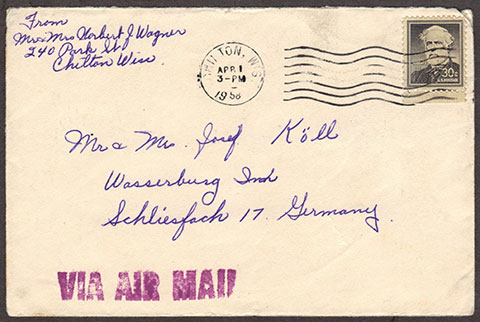 From
Mr & Mrs Norbert J Wagner
240 Park St
Chilton Wisc.
CHILTON, WIS.
APR 1
3 - PM
1958
30¢
Mr & Mrs. Josef Köll
Wasserburg Inn
Schliesfach 17. Germany.
VIA AIR MAIL